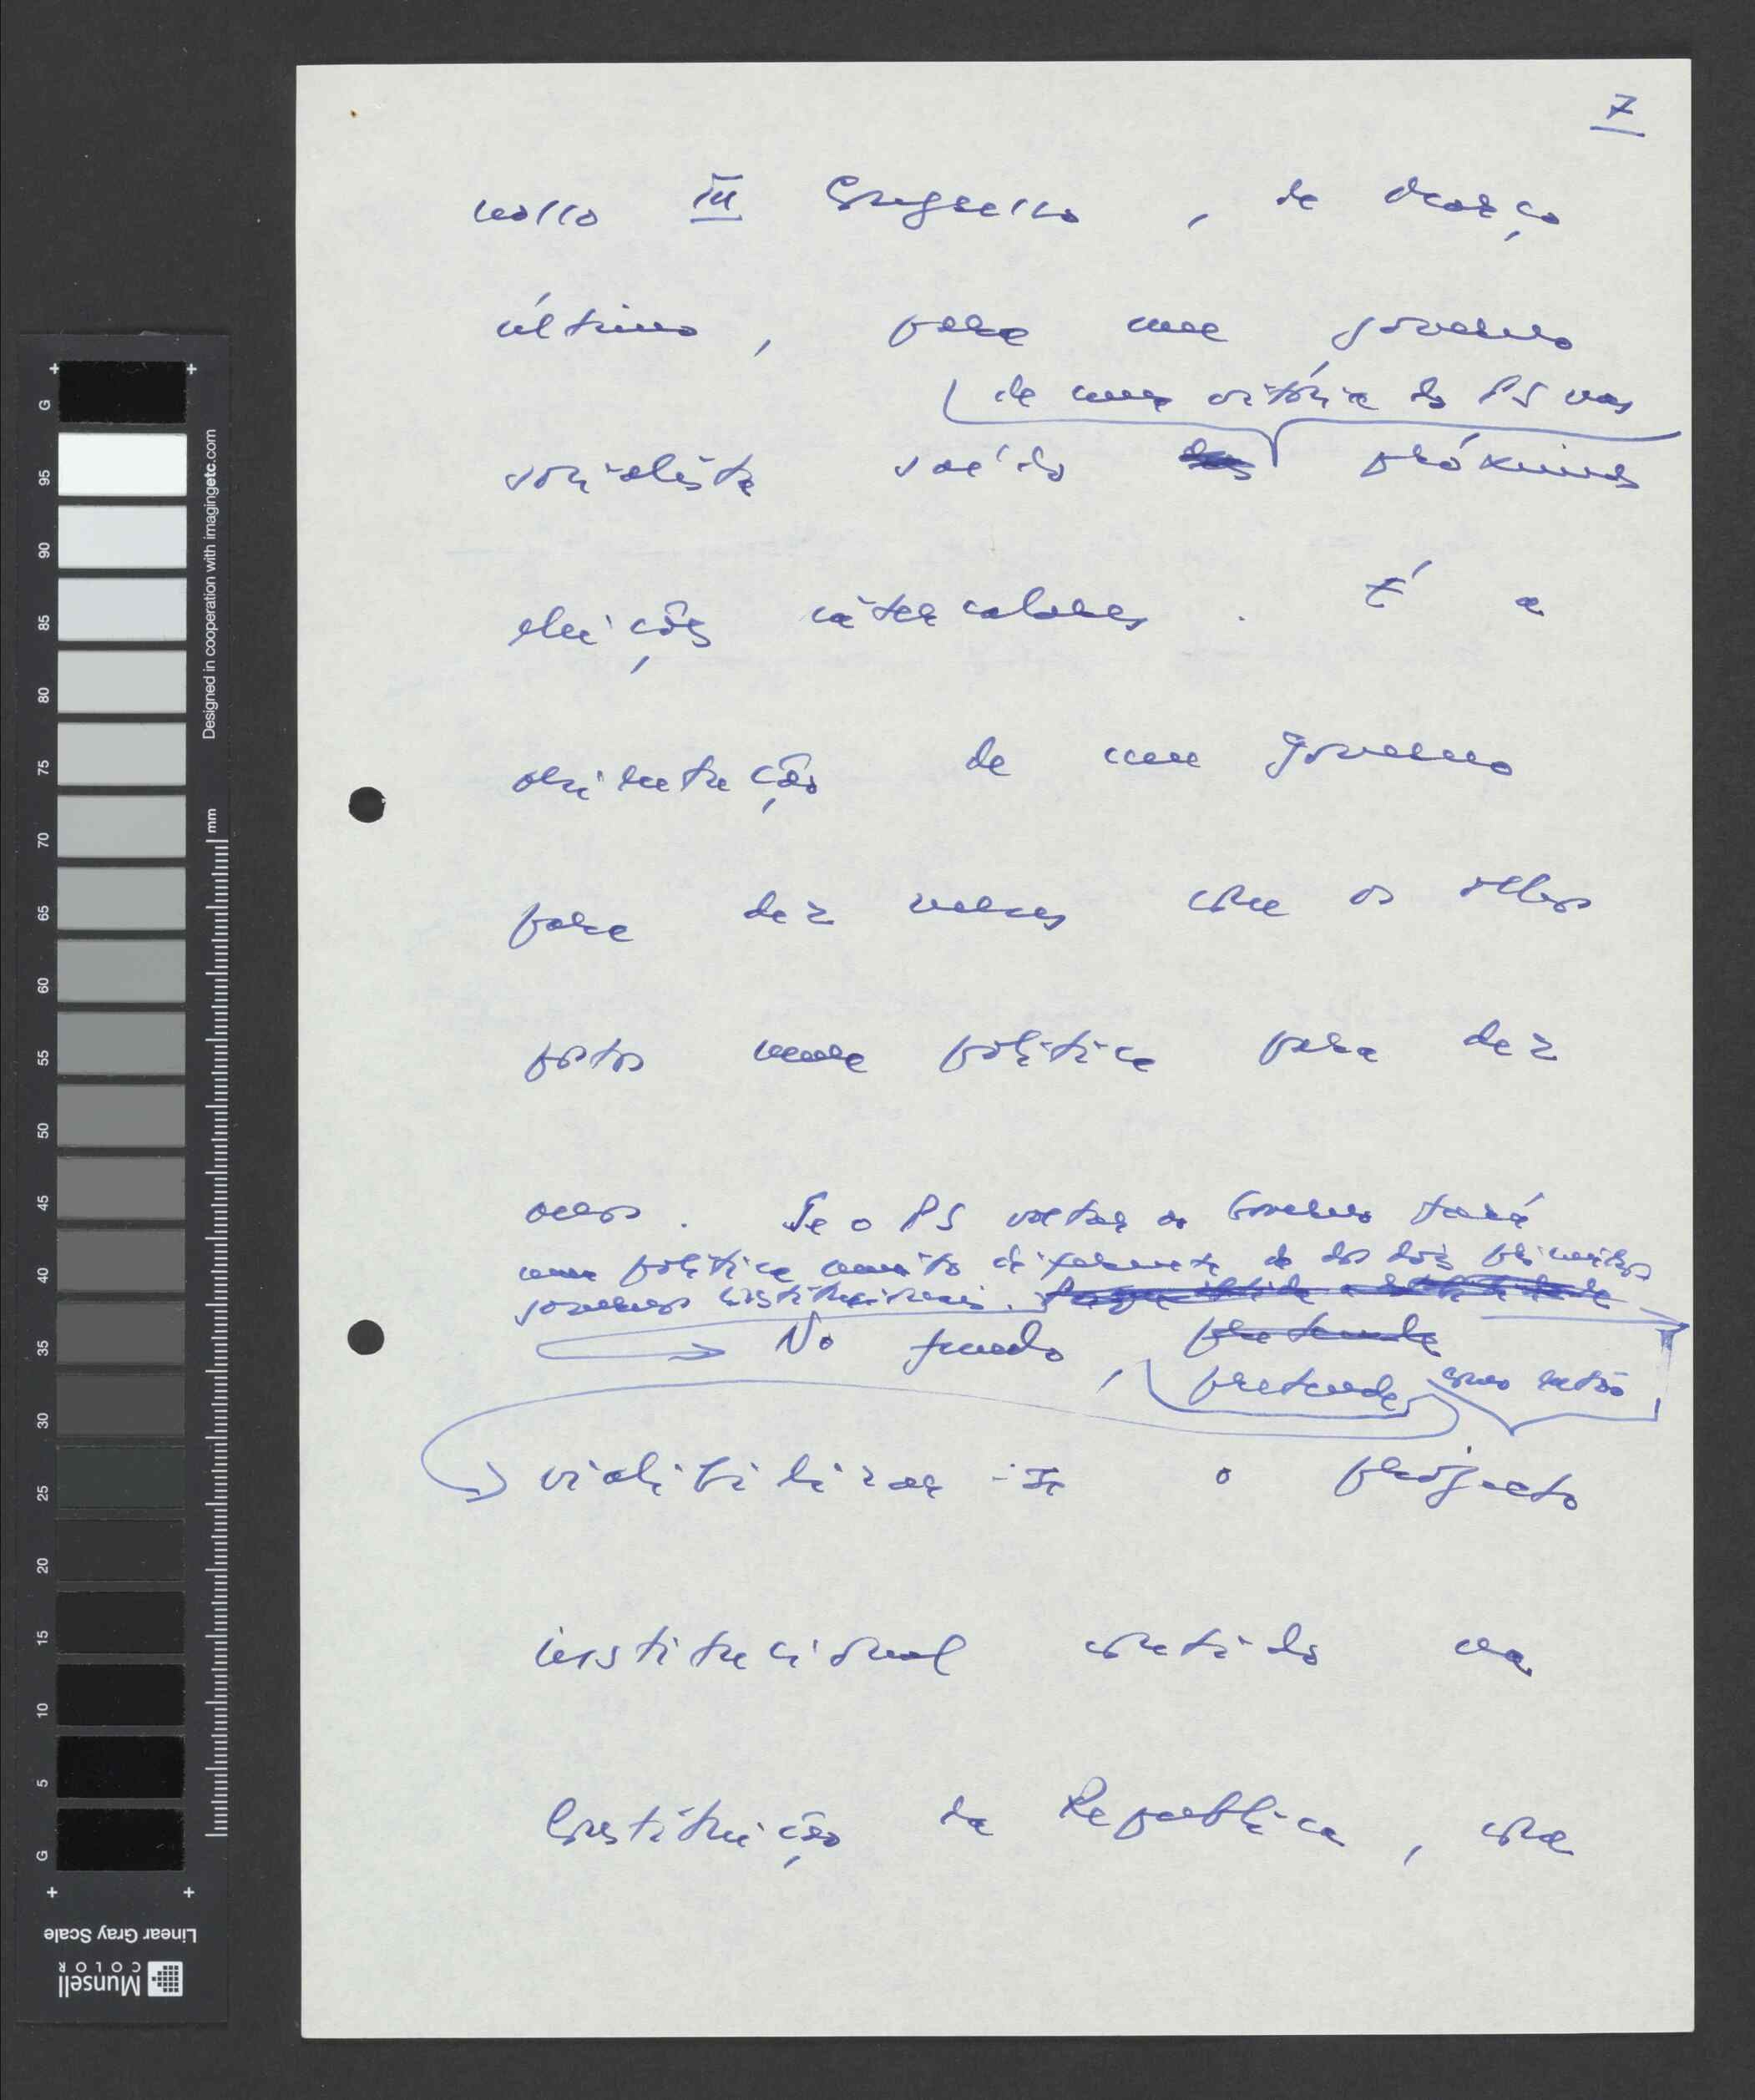 7
nosso III Congresso , de Março
último , para um governo
de uma vitória do PS nas
socialista saído das próximas
eleições intercalares . É a
orientação de um Governo
para dez meses com os olhos
postos numa política para dez
anos . Se o PS voltar ao Governo fará
uma política muito diferente da dos dois primeiros
governos constitucionais.
No fundo , pretende
pretende, como então
viabilizar-se o projecto
institucional contido na
Constituição da República , com
G
95
90
85
80
75
70
65
60
55
50
45
40
35
30
25
20
15
10
5
G
mm
Designed in cooperation with imagingetc.com
Linear Gray Scale
Munsell
COLOR